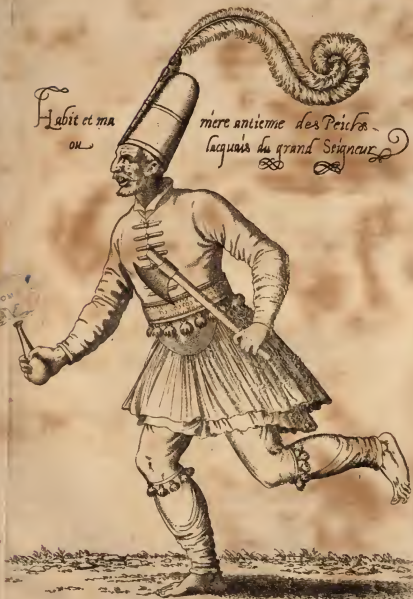 Habit et ma niere antienne des Peichs
ou lacquais du grand Seigneur